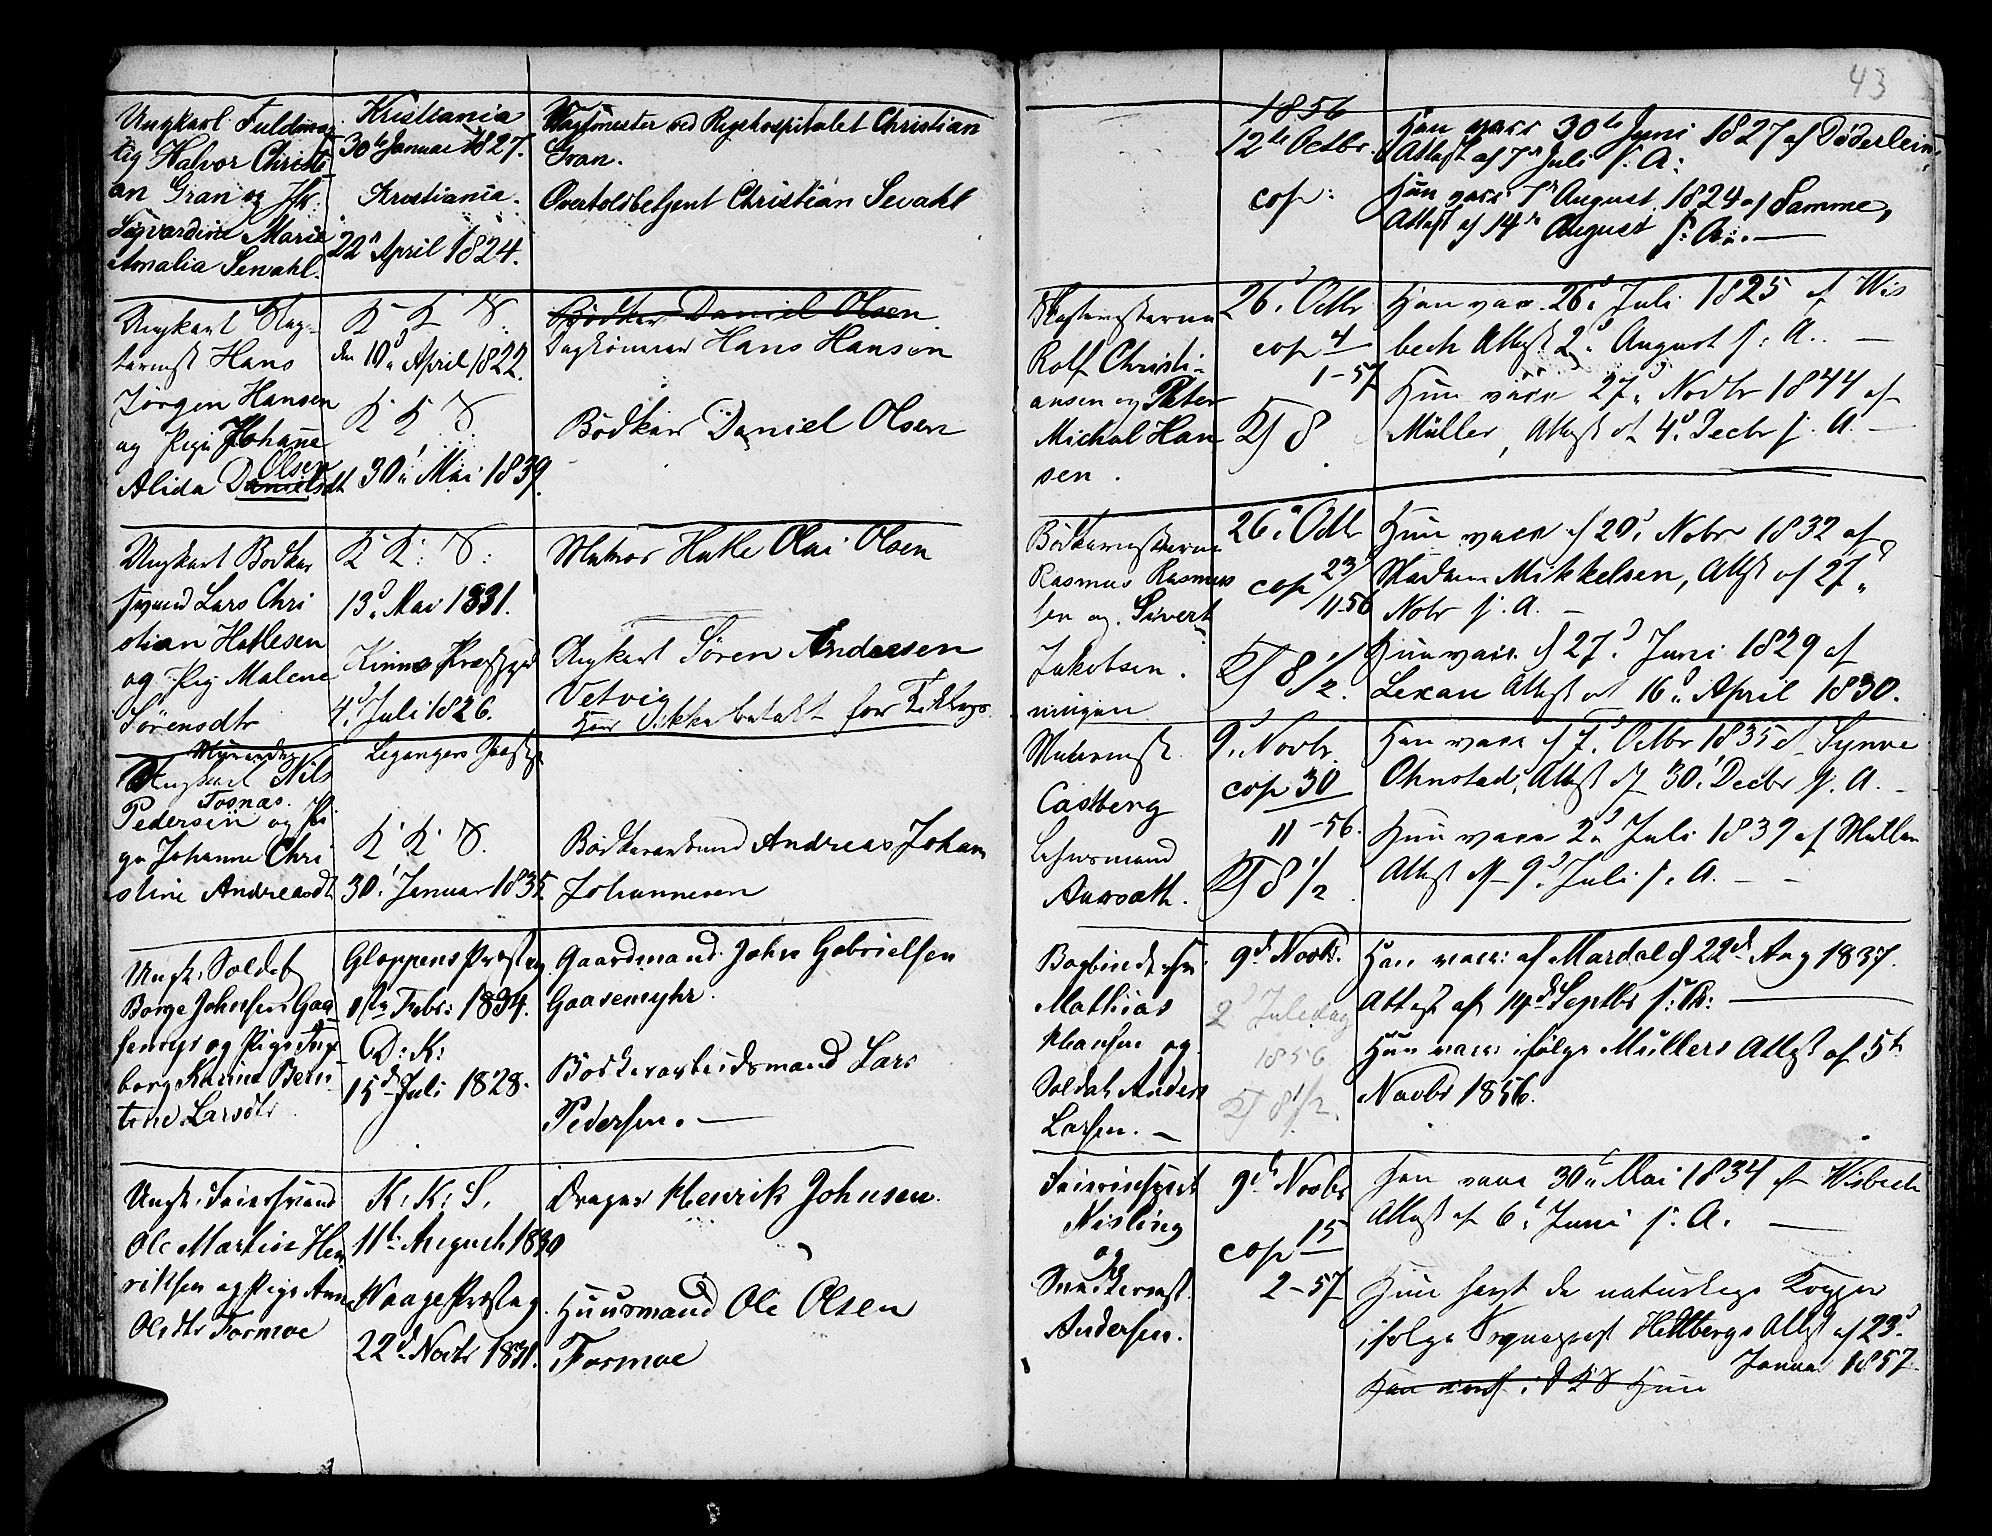 43
Ungkarl Fuldmæg
tig Halvor Christi
an Gran og Jfr.
Sigvardine Marie
Amalia Sewahl.
Kristiania
30te Januar 1827.
Kristiania.
22de April 1824.
Vagtmester ved Rigshospitalet Christian
Gran.
Overtoldbetjent Christian Sewahl
1856
12te Octbr.
cop:
Han vacc 30te Juni 1827 af Döderlein,
Attest af 7de Juli s: A:
Hun vacc August 1824 af Samme,
Attest af 14de August s: A.
Ungkarl Slag-
termst Hans
Jørgen Hansen
og Pige Johanne
Olsen
Alida Danielsdt
K K S
den 10d April 1822.
K K S
30d Mai 1839.
Bødker Daniel Olsen
Hans Hansen
Bødker Daniel Olsen
Rolf Christi-
ansen og Peter
Michal Han
sen.
26d Octbr
cop 4
1-57
8
Han vacc. 26d Juli 1825 af Wis
bech Attest 2d August s. A. —
Hun vacc 27d Novbr 1844 af
Müller, Attest af 4d Decbr s. A. —
Ungkarl Bødker
svend Lars Chri
stian Hatlesen
og Pig Malene
Sørensdtr
K K: S:
13d Mai 1831.
Kinns Præstgd
4d Juli 1826.
Matros Hatle Olai Olsen
Ungkarl Søren Andersen
Vetvig
Har ikke betalt for
Bødkermesterne
Rasmus Rasmus
sen og Sivert
Jakobsen.
26d Octbr
cop 23/
11-56
8 1/2.
Hun vacc af 20d Nobr 1832 af
Madam Mikkelsen, Attest af 27d
Nobr s. A. —
Hun vacc. af 27d Juni 1829 af
Lexau Attest af 16d April 1830.
Ungkarl Nils
Pedersen og Pi
ge Johanne Chri
stine Andreasdt
Legangers Præstgd
K K S.
30d Januar 1835.
Bødkersvend Andreas Johan
Johannesen
Murermst
Castberg
Lehnsmand
9d Novbr.
cop 30
11-56.
8 1/2
Han vacc af 7d Octbr 1835 af Synve
Ohnstad, Attest af 30d Decbr s. A. —
Hun vacc 2d Juli 1839 af Müller
Attest af 9d Juli s. A. — —
Ungk: Soldat
Børge Johnsen Gaa
semyr og Pige Inge
borg Karine Bern
tine Larsdtr
Gloppens Præstg
Febr: 1834.
D: K:
15d Juli 1828.
Gaardmand John Gabrielsen
Gaasemyhr.
Bødkerarbeidsmand Lars
Pedersen. —
Mathias
Hansen og
Soldat Anders
Larsen. —
9d Novbr.
2d Juledag
1856
8 1/2.
Han vacc: af Mardal d 22d Aug 1837.
Attest af 14d Septbr s: A: —
Hun vacc: ifølge Müllers Attest af 5te
Novbr 1856.
Ungk: Feiersvend
Ole Martin Hen
riksen og Pige Anne
Olsdtr Formoe
K: K: S.
11te August 1830
Waage Præstg.
22d Novbr 1831.
Drager Henrik Johnsen.
Huusmand Ole Olsen
Formoe
Nisling
og
Andersen.
9de Novbr
cop 15
2-57
Han vacc 30te Mai 1834 af Wisbech
Attest af 6d Juni s. A. —
Hun havt de naturlige Kopper
ifølge Sognepræst Hedtbergs Attest af 23d
Januar 1857